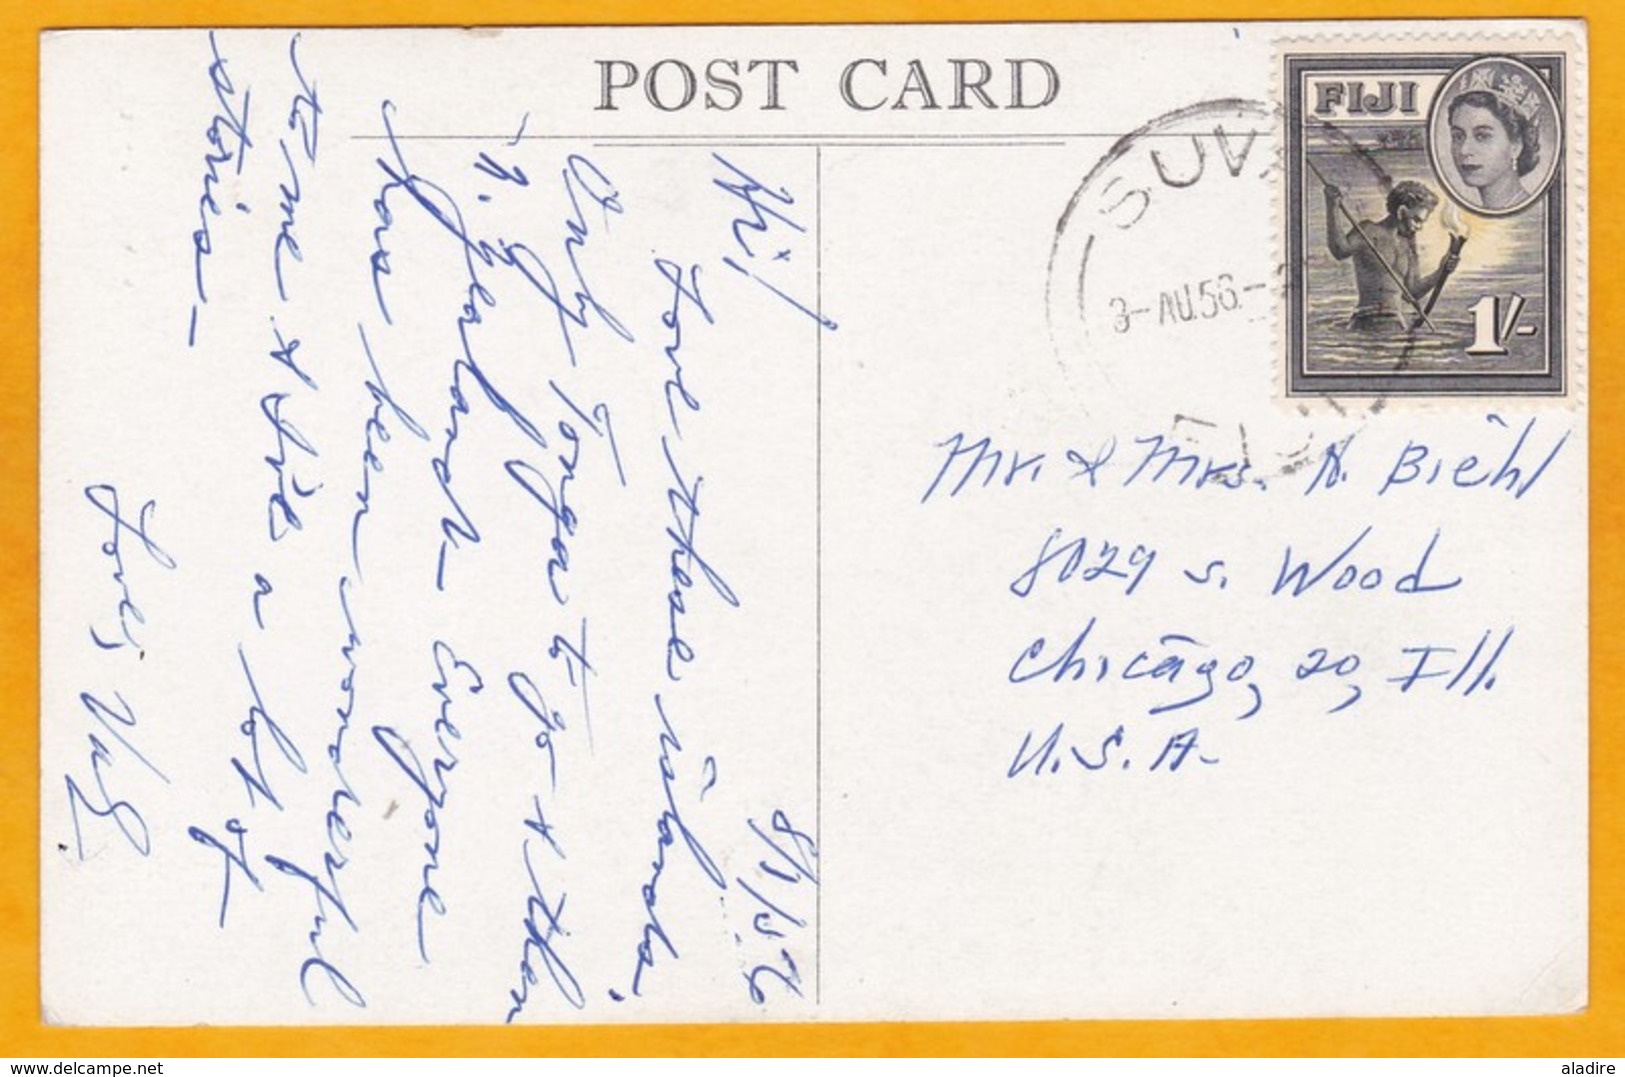 POST CARD
FIJI
1/-
SUVA
3-AU.56.-
FIJI
8/1/56
Hi!
Love these islands.
Only Tonga to go & then
N. Zealand - Everyone
has been wonderful
to me & I've a lot of
stories -
Love,
Mr. & Mrs. H. Biehl
8029 S. Wood
Chicago, 20, Ill.
U.S.A.
www.delcampe.net
aladire